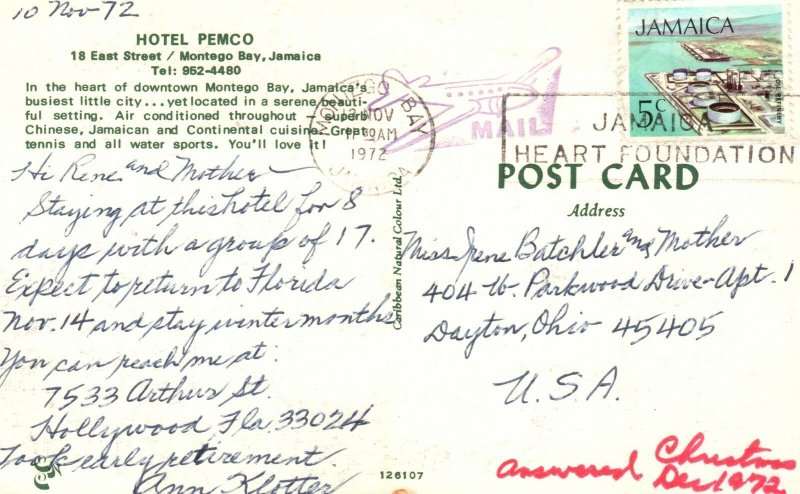 10 Nov-72
HOTEL PEMCO
18 East Street / Montego Bay, Jamaica
Tel: 952-4480
In the heart of downtown Montego Bay, Jamaica's
busiest little city...yet located in a serene beauti-
ful setting. Air conditioned throughout superb
Chinese, Jamaican and Continental cuisine. Great
tennis and all water sports. You'll love it!
Hi Rene and Mother
Staying at this hotel for 8
days with a group of 17.
Expect to return to Florida
Nov. 14 and stay winter months
You can reach me at:
7533 Arthur St.
Hollywood Fla 33024
Took early retirement.
Ann Klotter
Caribbean Natural Colour Ltd.
126107
JAMAICA
5c
MONTEGO BAY
NOV
AM
1972
MAIL
JAMAICA
HEART FOUNDATION
POST CARD
Address
Miss Irene Batchler and Mother
404 W. Parkwood Drive-Apt. 1
Dayton, Ohio 45405
U.S.A.
answered Christmas
Dec 1972